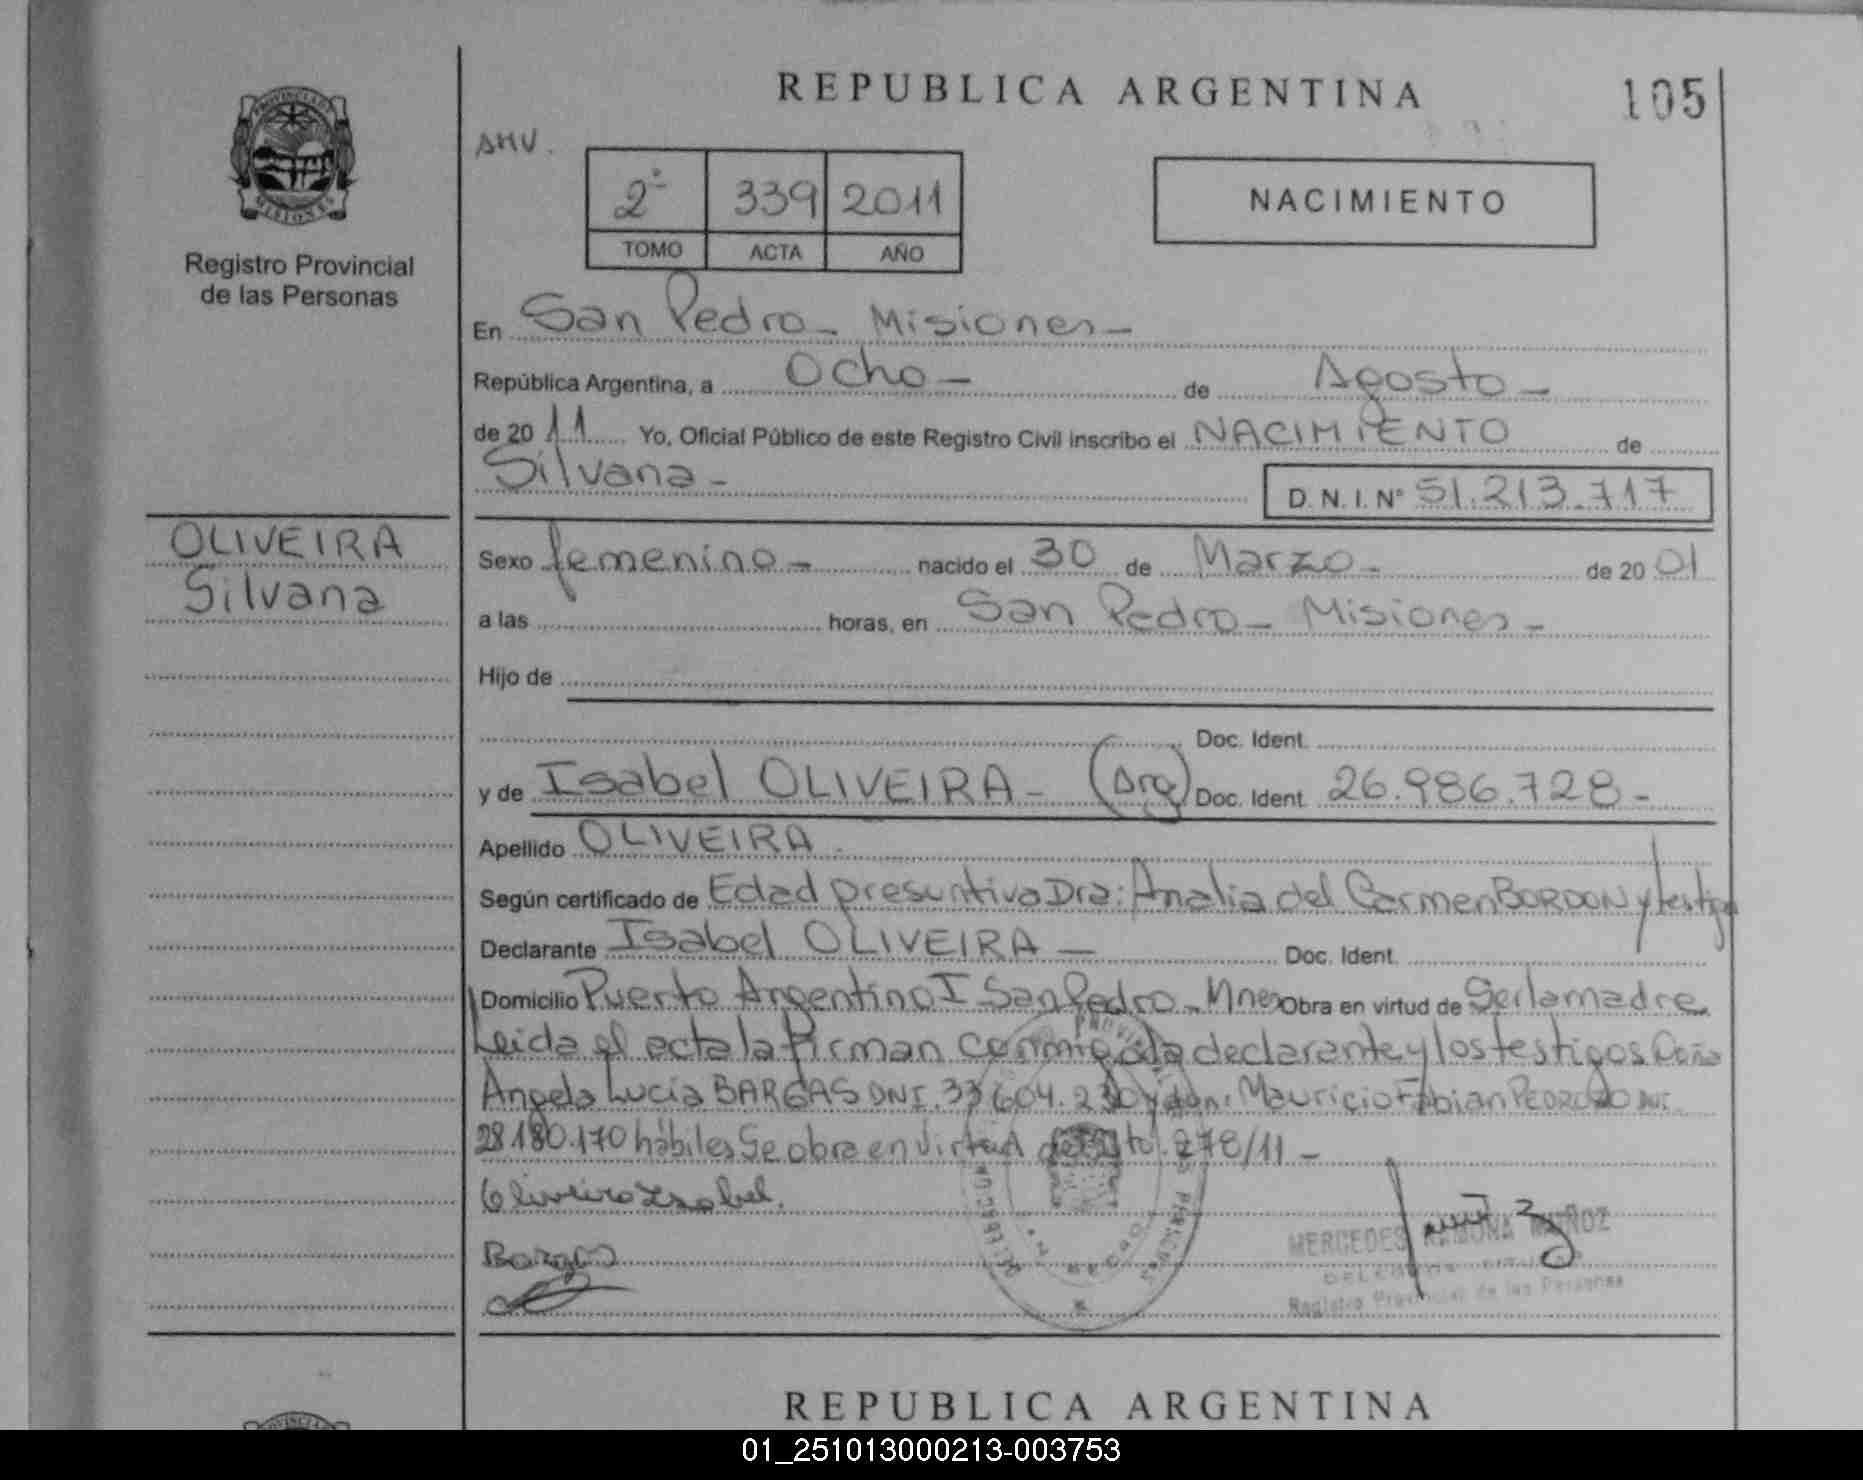 REPUBLICA ARGENTINA
105
PROVINCIA DE MISIONES
Registro Provincial
de las Personas
AMV.
2º 339 2011
TOMO ACTA AÑO
NACIMIENTO
En San Pedro - Misiones -
República Argentina, a Ocho - de Agosto -
de 2011 Yo, Oficial Público de este Registro Civil inscribo el NACIMIENTO de
Silvana -
D. N. I. Nº 51.213.717
OLIVEIRA
Silvana
Sexo femenino - nacido el 30 de Marzo - de 2001
a las horas, en San Pedro - Misiones -
Hijo de
Doc. Ident.
y de Isabel OLIVEIRA - (Arg) Doc. Ident. 26.986.728 -
Apellido OLIVEIRA
Según certificado de Edad presuntiva Dra: Analia del Carmen BORDON y testigo
Declarante Isabel OLIVEIRA - Doc. Ident.
Domicilio Puerto Argentino I San Pedro - Mnes Obra en virtud de Ser la madre
Leida el acta la firman conmigo la declarante y los testigos Doña
Angela Lucia BARGAS DNI. 33.604.230 y don: Mauricio Fabian PEDROZO DNI.
28.180.170 hábiles Se obra en virtud 278/11 -
Oliveira Isabel.
Bargas
MERCEDES RAMONA MUÑOZ
Registro Provincial de las Personas
REPUBLICA ARGENTINA
01_251013000213-003753